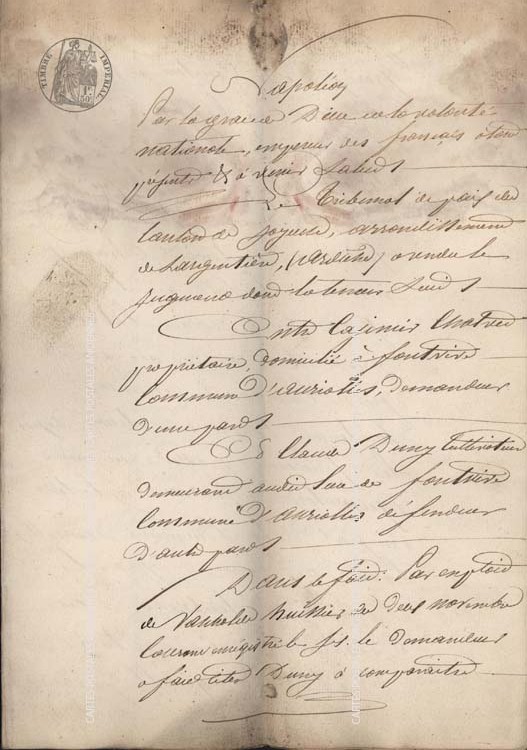 TIMBRE IMPERIAL
Napoléon
Par la grace de Dieu et la volonté
nationale, empereur des français à tous
présents & à venir Salut
Le Tribunal de paix du
Canton de Joyeuse, arrondissement
de Largentière, (ardèche) a rendu le
jugement dont la teneur Suit
Entre Casimir
propriétaire, domicilié à fontvive
Commune d'auriolles, demandeur
d'une part
Et Claude Duny Cultivateur
demeurant audit lieu de fontvive
Commune d'auriolles défendeur
D'autre part
Dans le fait: Par exploit
de huissier du deux novembre
Courant enregistré le le demandeur
a fait citer Duny à comparaitre